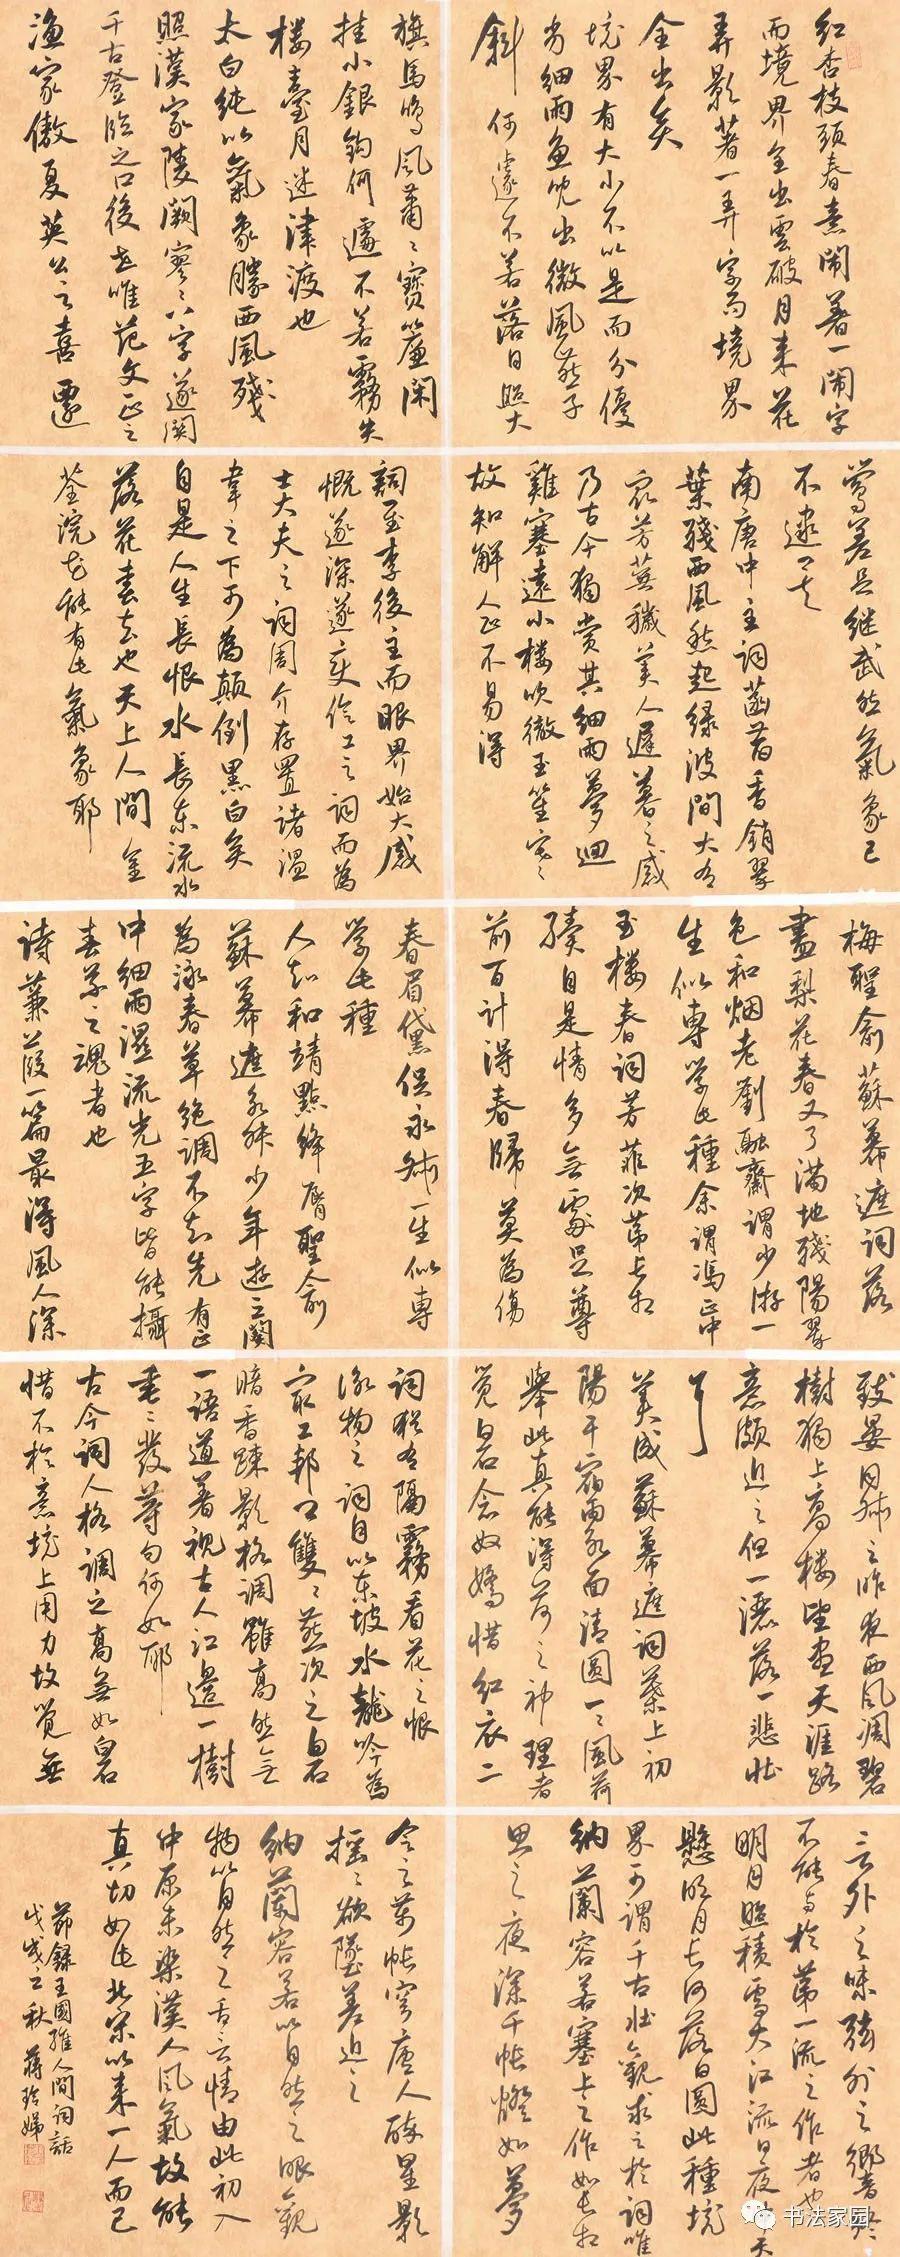 紅杏枝頭春意鬧著一鬧字
而境界全出雲破月來花
弄影著一弄字而境界
全出矣
境界有大小不以是而分優
劣細雨魚兒出微風燕子
斜何遽不若落日照大
旗馬鳴風蕭〻寶簾閑
挂小銀鉤何遽不若霧失
樓臺月迷津渡也
太白純以氣象勝西風殘
照漢家陵闕寥〻八字遂關
千古登臨之口後世唯范文正之
漁家傲夏英公之喜遷
鶯差足繼武然氣象已
不逮矣
南唐中主詞菡萏香銷翠
葉殘西風愁起綠波間大有
眾芳蕪穢美人遲暮之感
乃古今獨賞其細雨夢迴
雞塞遠小樓吹徹玉笙寒〻
故知解人正不易得
詞至李後主而眼界始大感
慨遂深遂變伶工之詞而為
士大夫之詞周介存置諸溫
韋之下可為顛倒黑白矣
自是人生長恨水長東流水
落花春去也天上人間金
荃浣花能有此氣象耶
梅聖俞蘇幕遮詞落
盡梨花春又了滿地殘陽翠
色和烟老劉融齋謂少游一
生似專學此種余謂馮正中
玉樓春詞芳菲次第長相
續自是情多無處足尊
前百計得春歸莫為傷
春眉黛促永叔一生似專
學此種
人知和靖點絳脣聖俞
蘇幕遮永叔少年游三闋
為詠春草絕調不知先有正
中細雨濕流光五字皆能攝
春草之魂者也
詩蒹葭一篇最得風人深
致晏同叔之昨夜西風凋碧
樹獨上高樓望盡天涯路
意頗近之但一灑落一悲壯
耳
美成蘇幕遮詞葉上初
陽干宿雨水面清圓一〻風荷
舉此真能得荷之神理者
覺白石念奴嬌惜紅衣二
詞猶有隔霧看花之恨
詠物之詞自以東坡水龍吟為
最工邦卿雙〻燕次之白石
暗香疎影格調雖高然無
一語道著視古人江邊一樹
垂〻發等句何如耶
古今詞人格調之高無如白石
惜不於意境上用力故覺無
言外之味弦外之響終
不能與於第一流之作者也
明月照積雪大江流日夜中天
懸明月長河落日圓此種境
界可謂千古壯觀求之於詞唯
納蘭容若塞上之作如長相
思之夜深千帳燈如夢
令之萬帳穹廬人醉星影
搖〻欲墜差近之
納蘭容若以自然之眼觀
物以自然之舌言情由此初入
中原未染漢人風氣故能
真切如此北宋以來一人而已
節錄王國維人間詞話
戊戌之秋蔣玲娣
书法家园